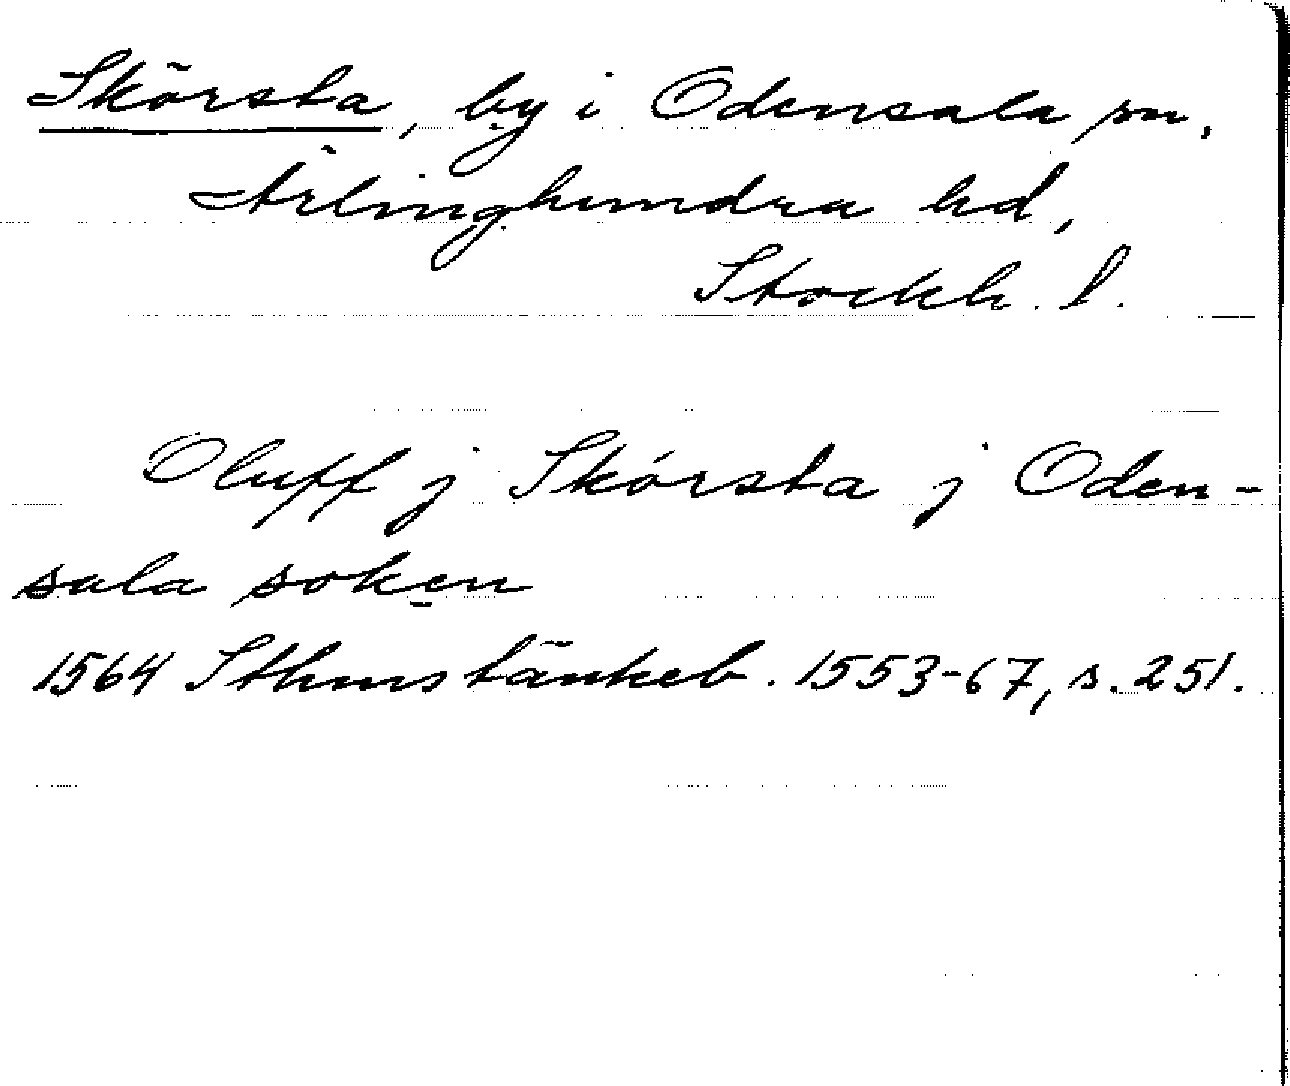 Skörsta, by i Odensala sn,
Ärlinghundra hd,
Stockh. l.
Oluff j Skörsta j Oden-
sala soken
1564 Sthms tänkeb. 1553-67, s. 251.